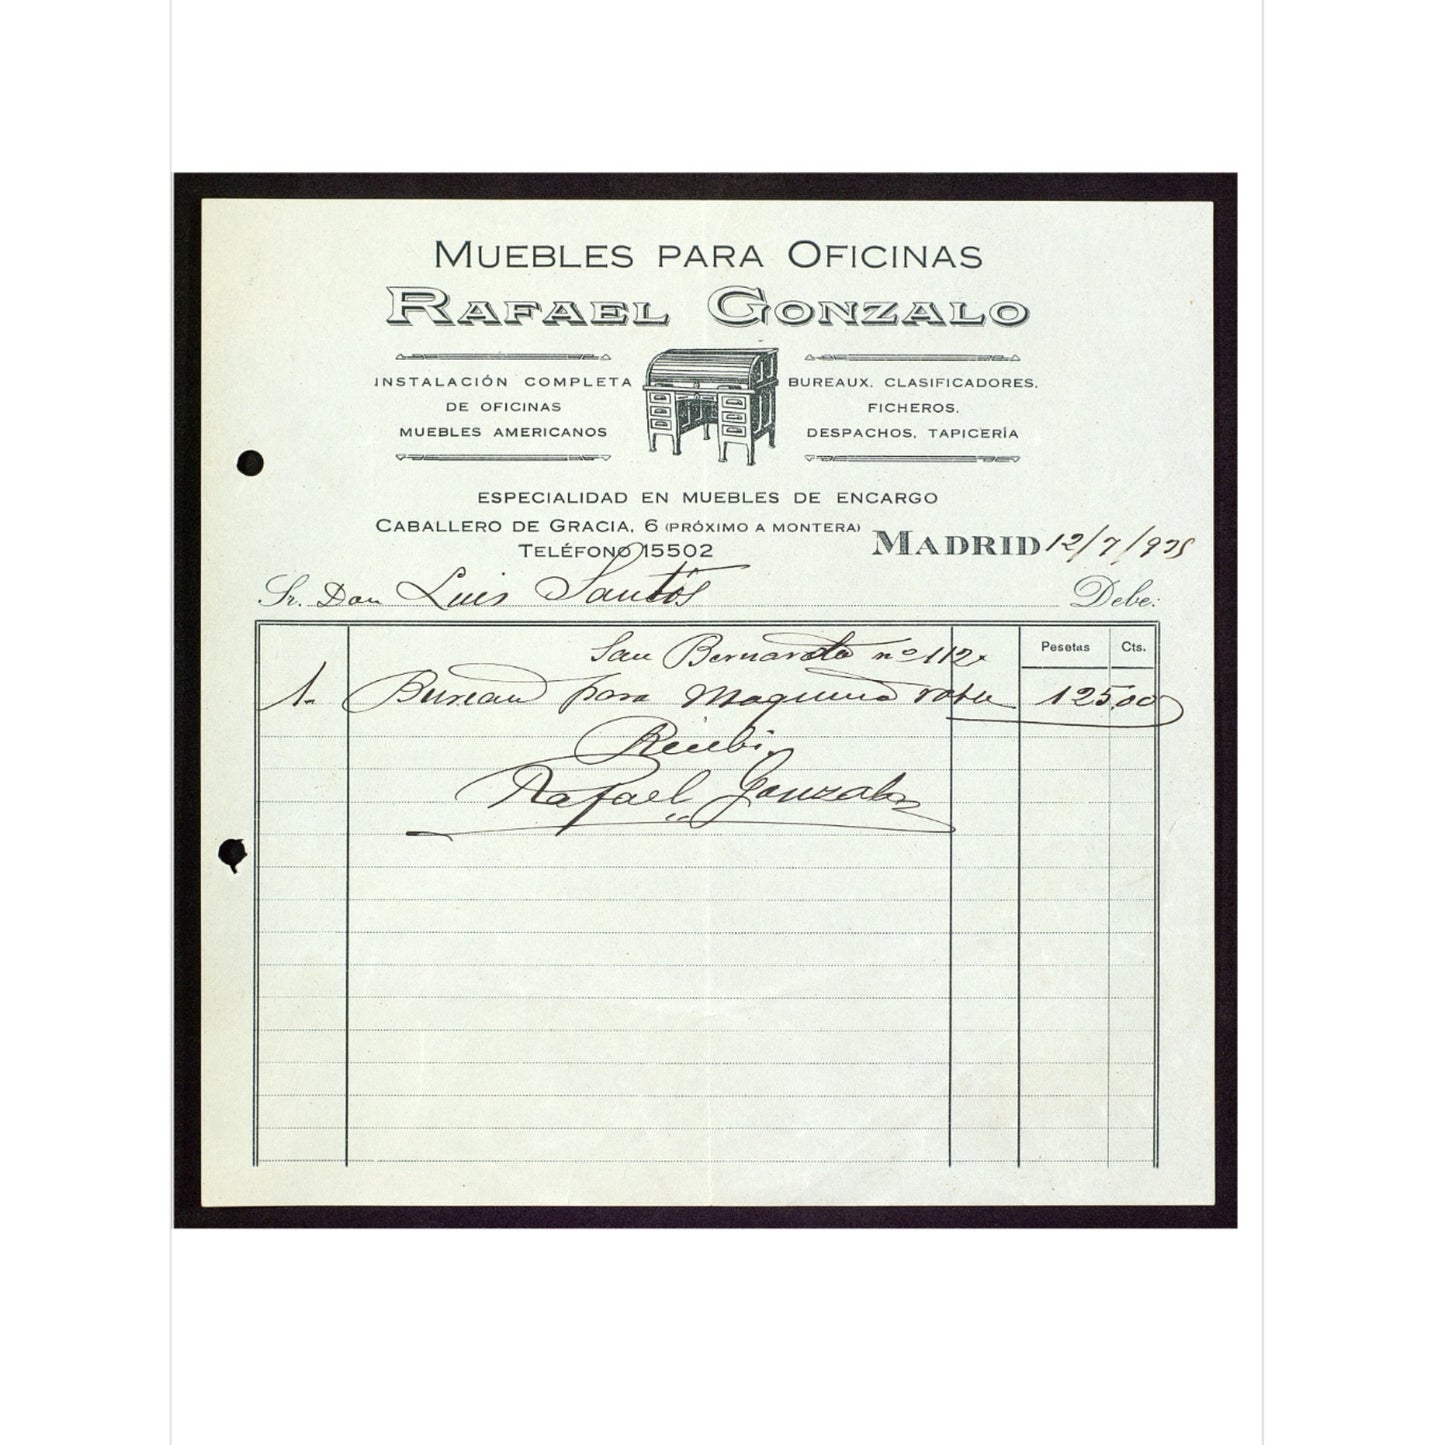 MUEBLES PARA OFICINAS
RAFAEL GONZALO
INSTALACIÓN COMPLETA
DE OFICINAS
MUEBLES AMERICANOS
BUREAUX, CLASIFICADORES,
FICHEROS,
DESPACHOS, TAPICERÍA
ESPECIALIDAD EN MUEBLES DE ENCARGO
CABALLERO DE GRACIA, 6 (PRÓXIMO A MONTERA)
TELÉFONO 15502
MADRID 12/7/935
Sr. Don Luis Santos Debe:
Pesetas Cts.
San Bernardo nº 112
1. Bureau para Maquina 125,00
Recibi
Rafael Gonzalo